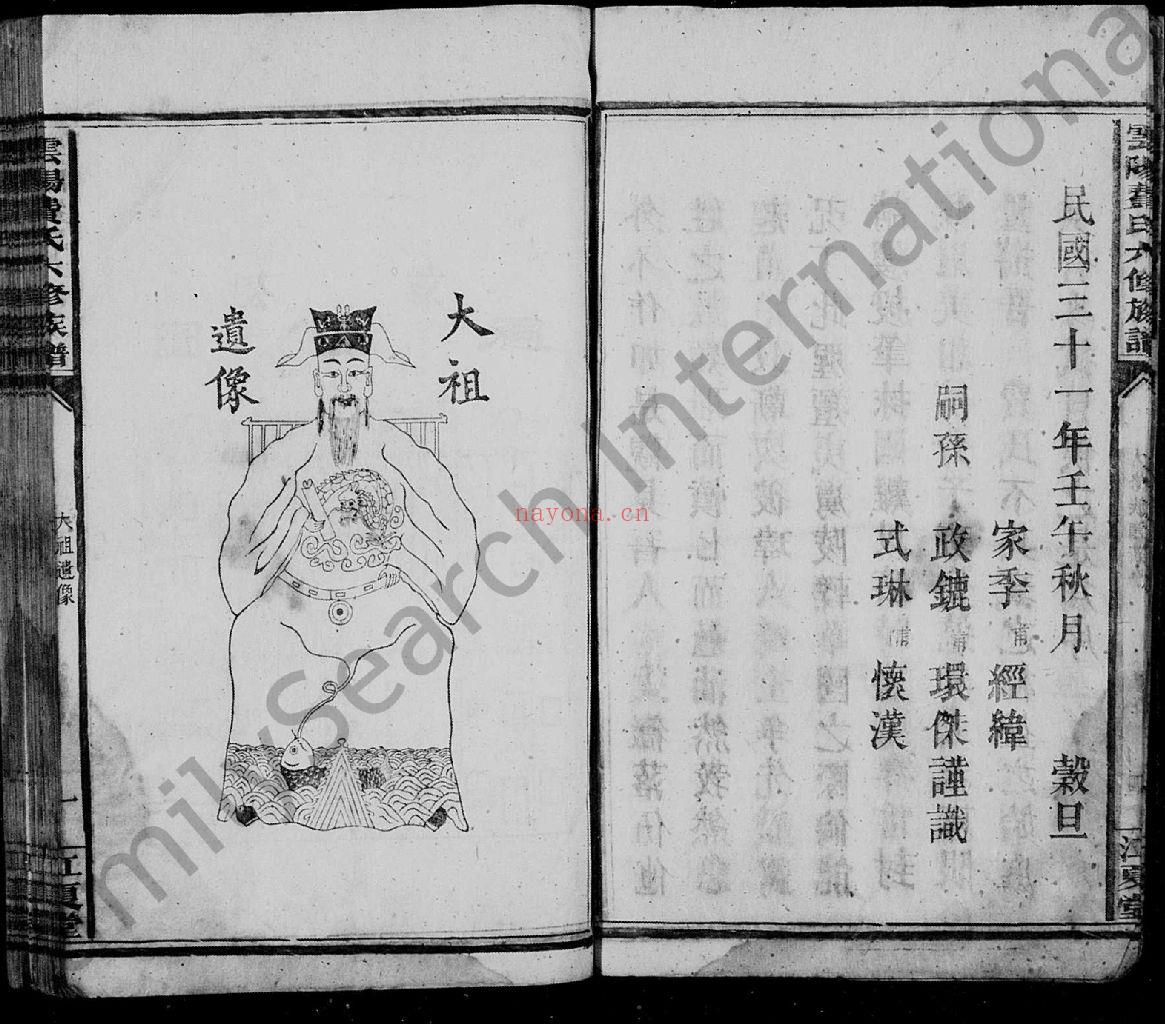 雲陽費氏六修族譜
江夏堂
民國三十一年壬午秋月 穀旦
家季甫 經緯
嗣孫 政鑣甫 環傑謹識
式琳甫 懷漢
大祖
遺像
雲陽費氏六修族譜
大祖遺像
一
江夏堂
nayona.cn
FamilySearch International